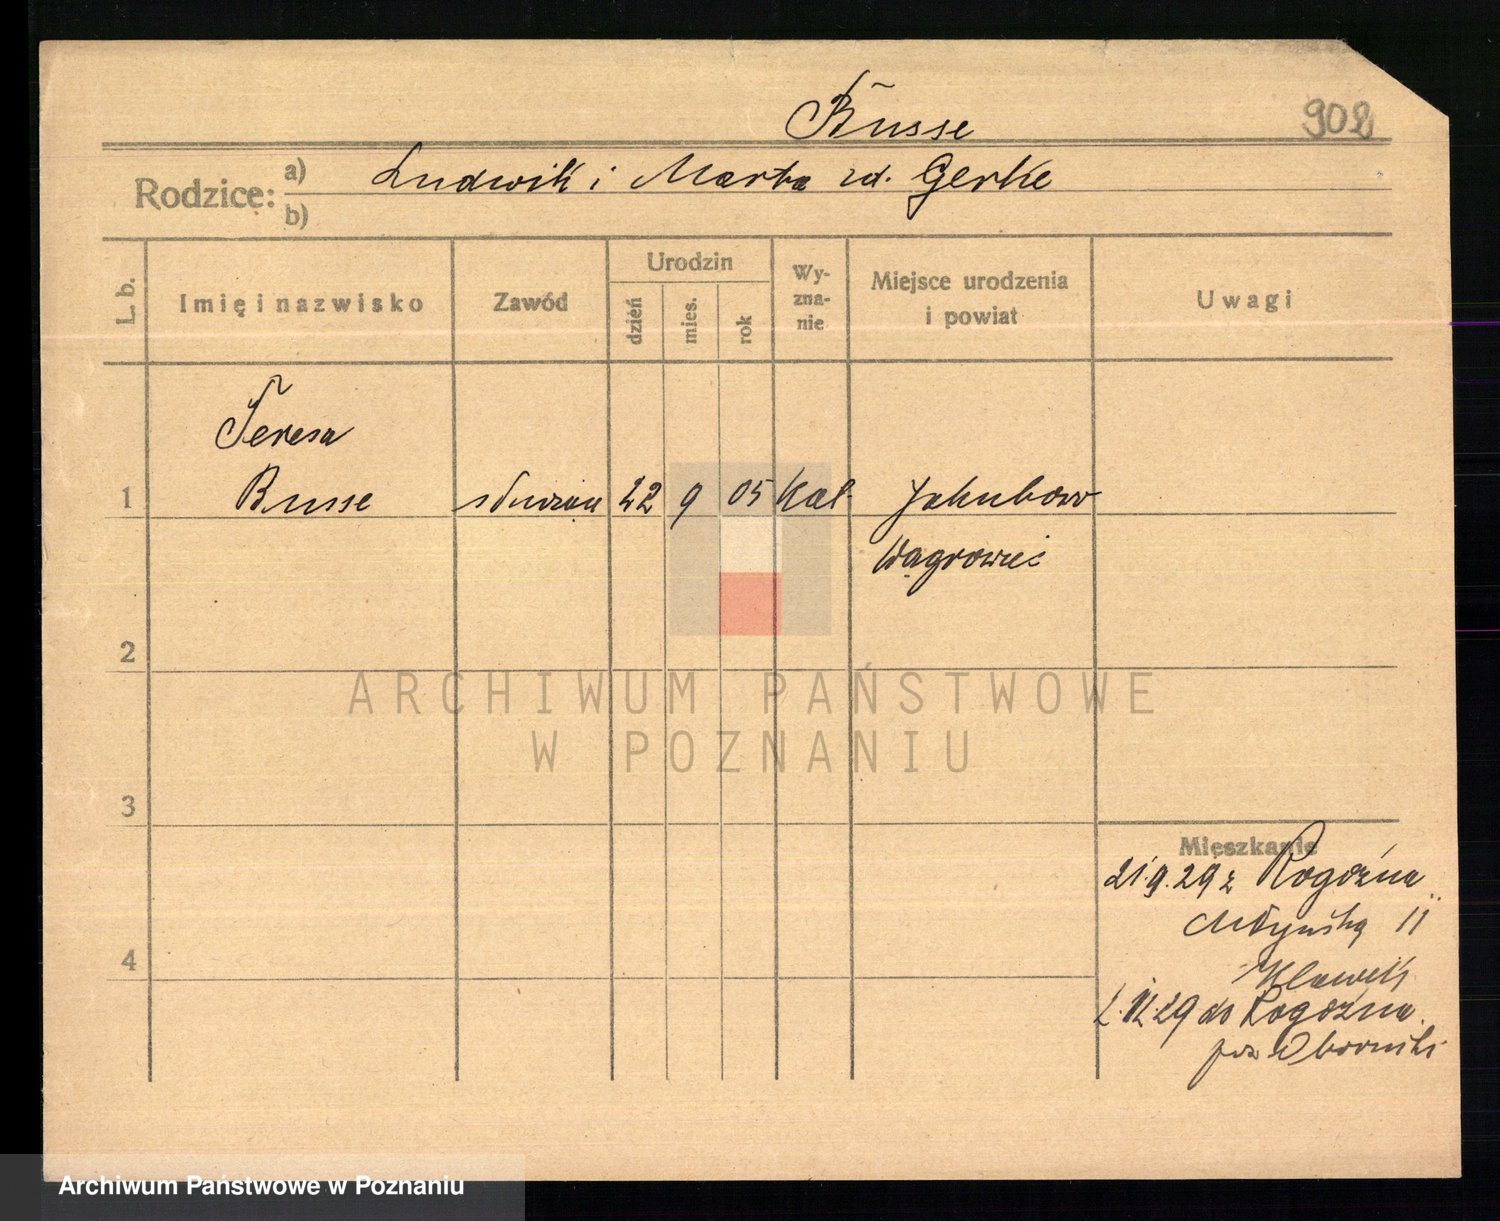 Busse
902
Rodzice: a) Ludwik i Marta zd. Gerke
b)
L. b.
Imię i nazwisko
Zawód
Urodzin
dzień
mies.
rok
Wy-
zna-
nie
Miejsce urodzenia
i powiat
Uwagi
Teresa
1 Busse 22 9 05 Kat. Jakubowo
Wągrowiec
2
ARCHIWUM PAŃSTWOWE
W POZNANIU
3
Mieszkanie
21.9.29 z Rogoźna
Młyńska 11
4
29 do Rogoźna
pow. Oborniki
Archiwum Państwowe w Poznaniu